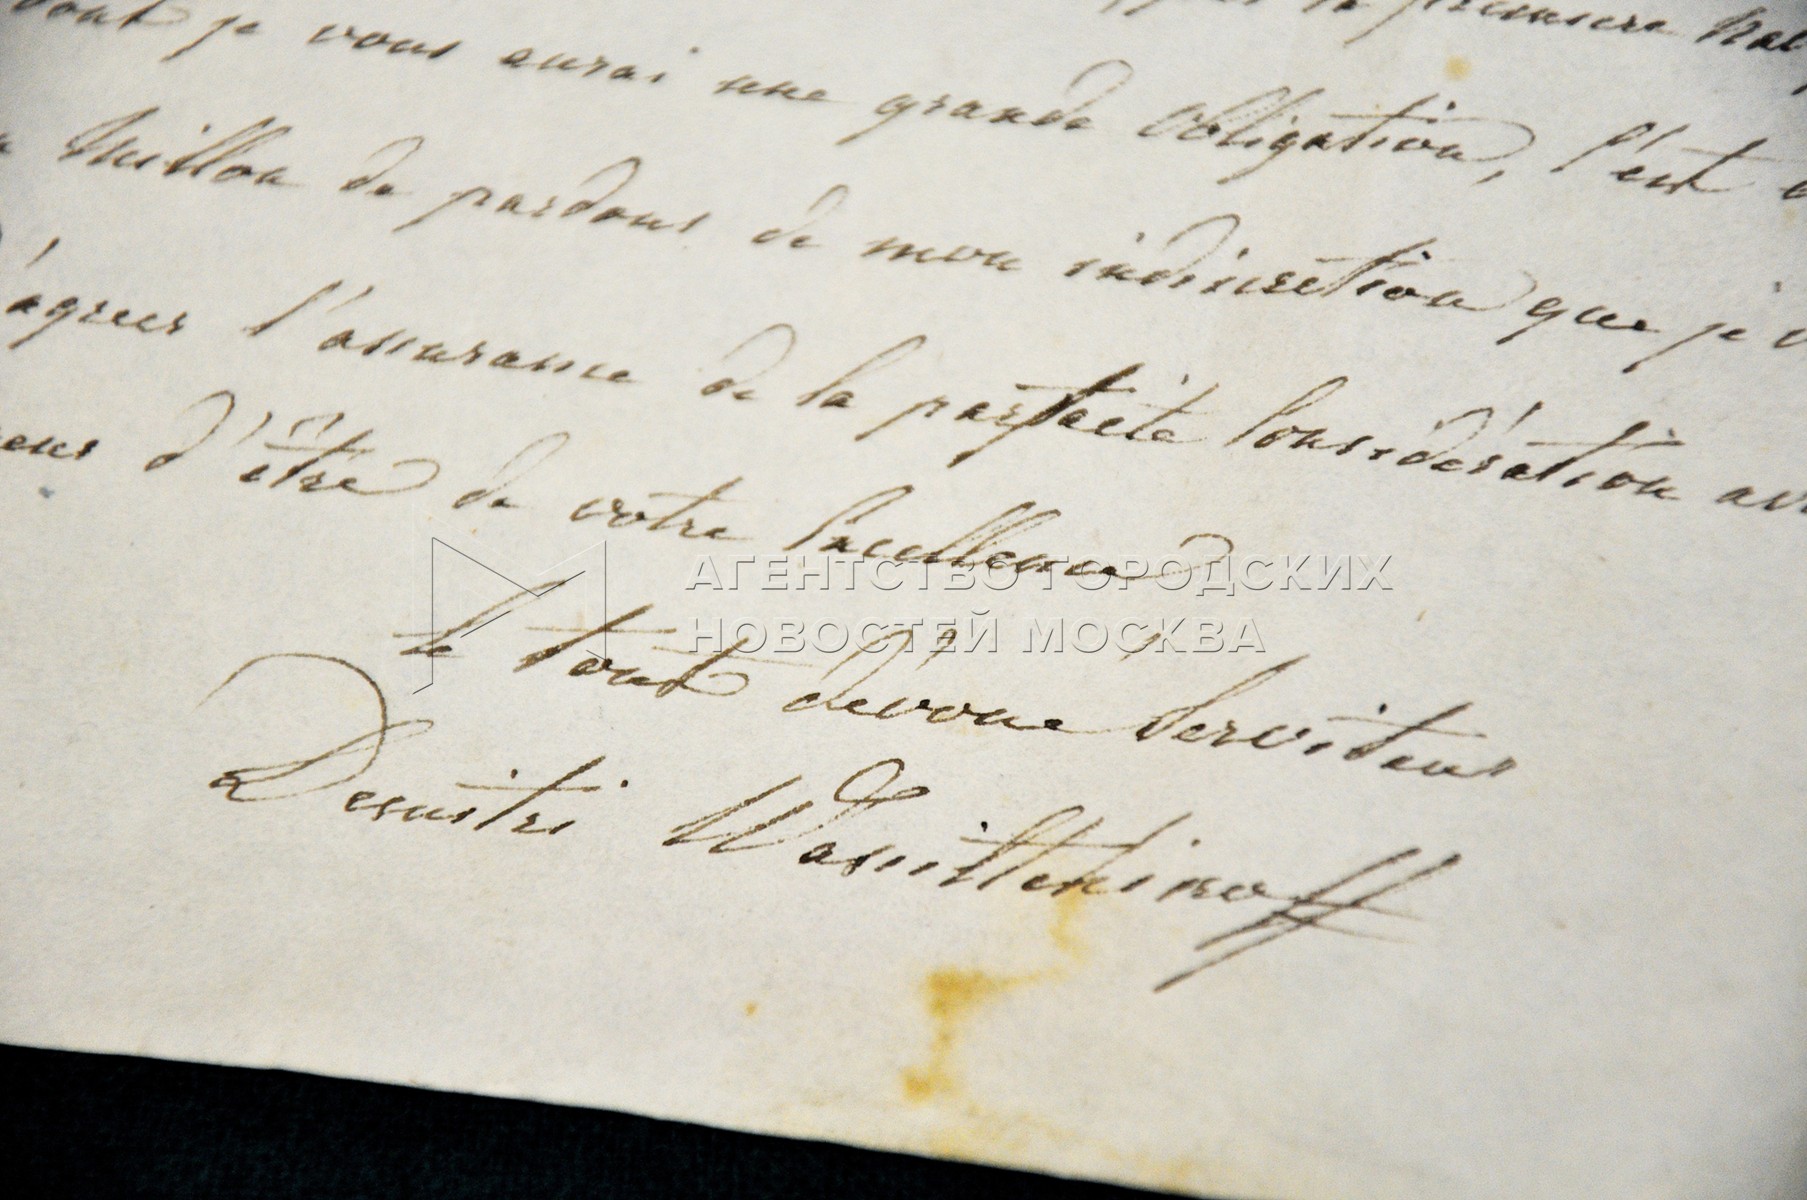 premiere
dont je vous aurai une grande obligation, C'est
Millon de pardons de mon indiscrétion que je
d'agreer l'assurance de la parfaite Considération
d'être de votre Excellence
le tout devoué Serviteur
Demitri Wassiltchikoff
АГЕНТСТВО ГОРОДСКИХ
НОВОСТЕЙ МОСКВА